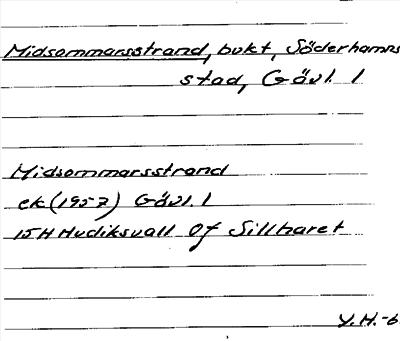 Midsommarsstrand, bukt, Söderhamns
stad, Gävl. l
Midsommarsstrand
ek (1957) Gävl. l
15H Hudiksvall 0f Sillharet
Y.H.-6